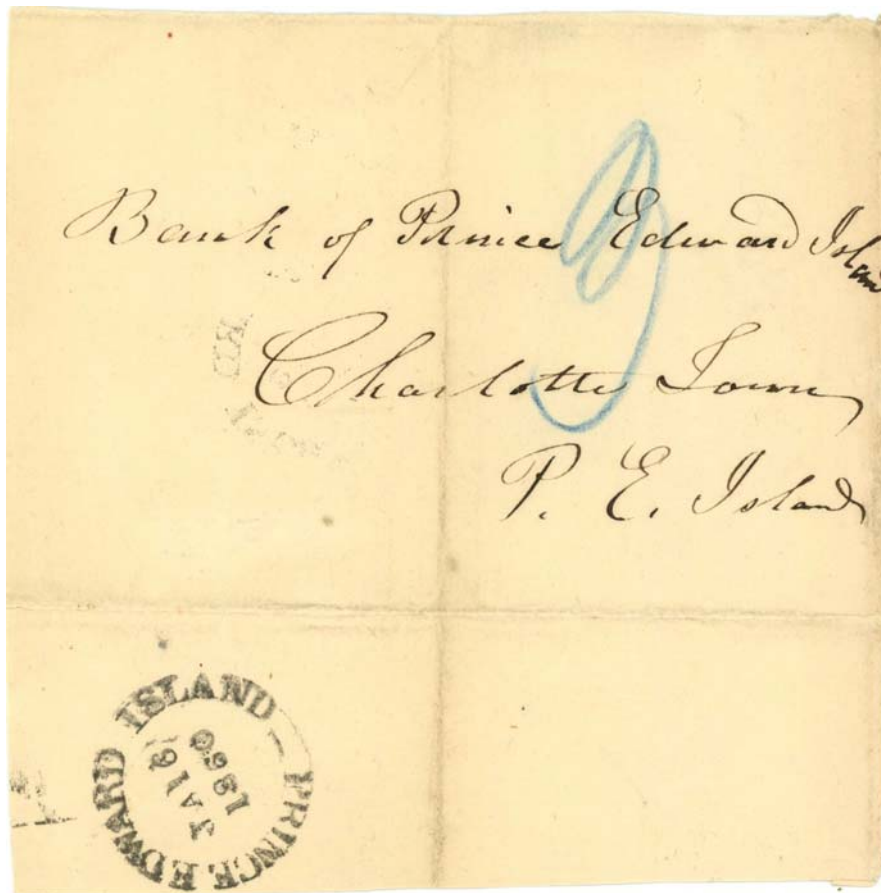 Bank of Prince Edward Island
Charlotte Town
P. E. Island
9
PRINCE EDWARD ISLAND
JA 16
1860